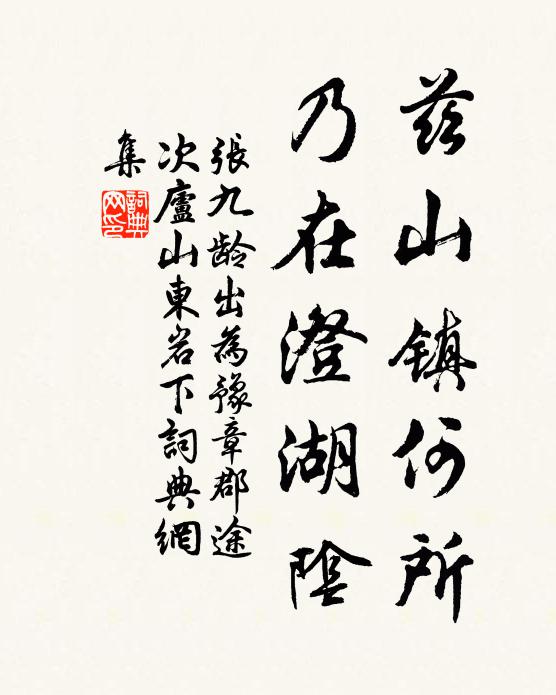 兹山镇何所
乃在澄湖陰
張九龄出為豫章郡途
次廬山東岩下詞典網
集
詞典
网印